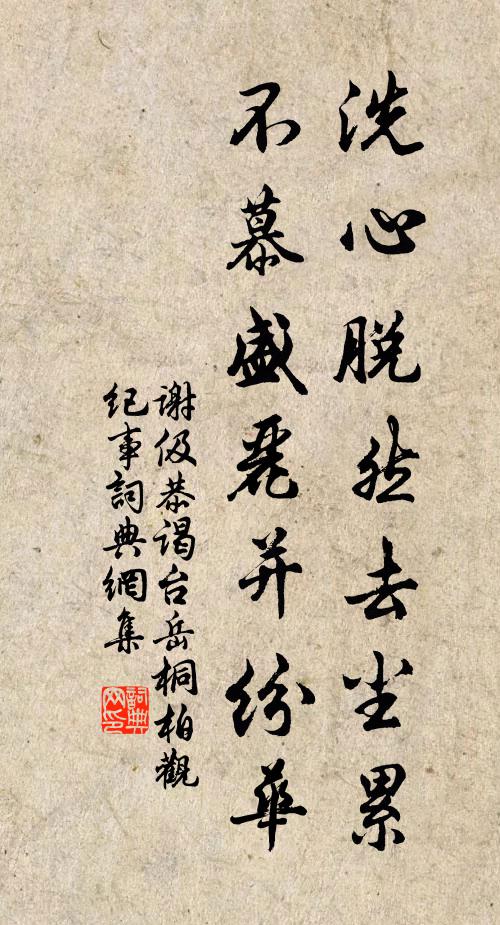 洗心脱然去尘累
不慕盛麗并纷華
謝伋恭谒台岳桐柏觀
纪事詞典網集
詞典
网印